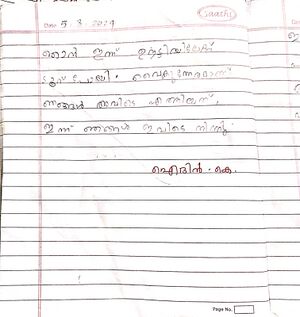 Saathi
Date 5.8.2024
ഞാൻ ഇന്ന് ഊട്ടിയിലേക്ക്
ടൂർ പോയി. വൈകുന്നേരമാണ്
ഞങ്ങൾ അവിടെ എത്തിയത്,
ഇന്ന് ഞങ്ങൾ ഇവിടെ നിന്നു.
...
ഐദിൻ . കെ.
Page No.